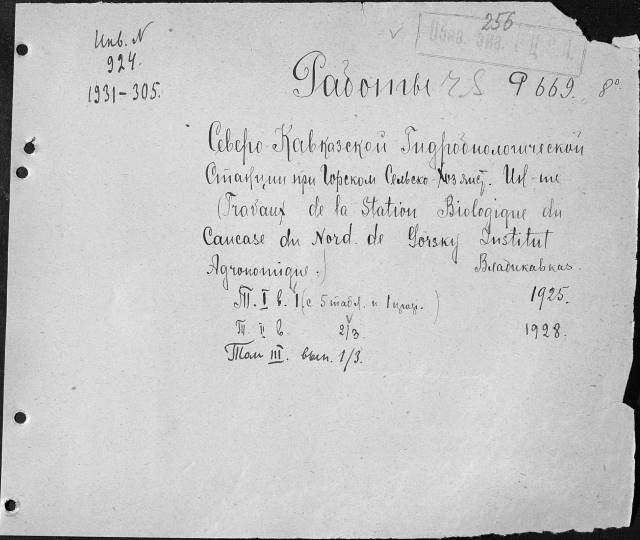 256
Инв. N
924.
1931-305.
Работы Р 669. 8°
Северо Кавказской Гидробиологической
Станции при Горском Сельско-Хозяист. Ин-те
(Travaux de la Station Biologique du
Caucase du Nord. de Gorsky Institut
Agronomique.) Владикавказ.
Т. I в. 1 (с 5 табл. и 1 ) 1925.
Т. II в. 2/3 1928.
Том III. вып. 1/3.